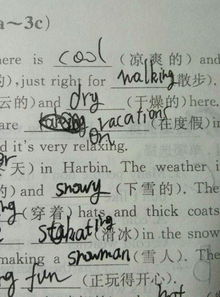 a～3c)
here is cool (凉爽的) and
的),just right for walking 散步).
云的) and dry (干燥的) here.
are on vacations (在度假)in
d it's very relaxing.
天) in Harbin. The weather i
的) and snowy (下雪的). The
ng (穿着) hats and thick coats
skating (滑冰)in the snow
making a snowman (雪人). The
ng fun (正玩得开心).
hot